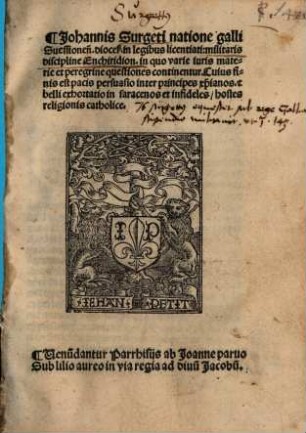 Surgetus
¶Johannis Surgeti natione galli
Suessioneñ. dioces̃. in legibus licentiati: militaris
discipline Enchiridion. in quo varie iuris mate-
rie et peregrine questiones continentur. Cuius fi-
nis est pacis persuasio inter principes xp̃ianos. et
belli exhortatio in saracenos et infideles / hostes
religionis catholice.
I P
IEHAN PETIT
¶Uenũdantur Parrhisijs ab Joanne paruo
Sub lilio aureo in via regia ad diuũ Jacobũ.